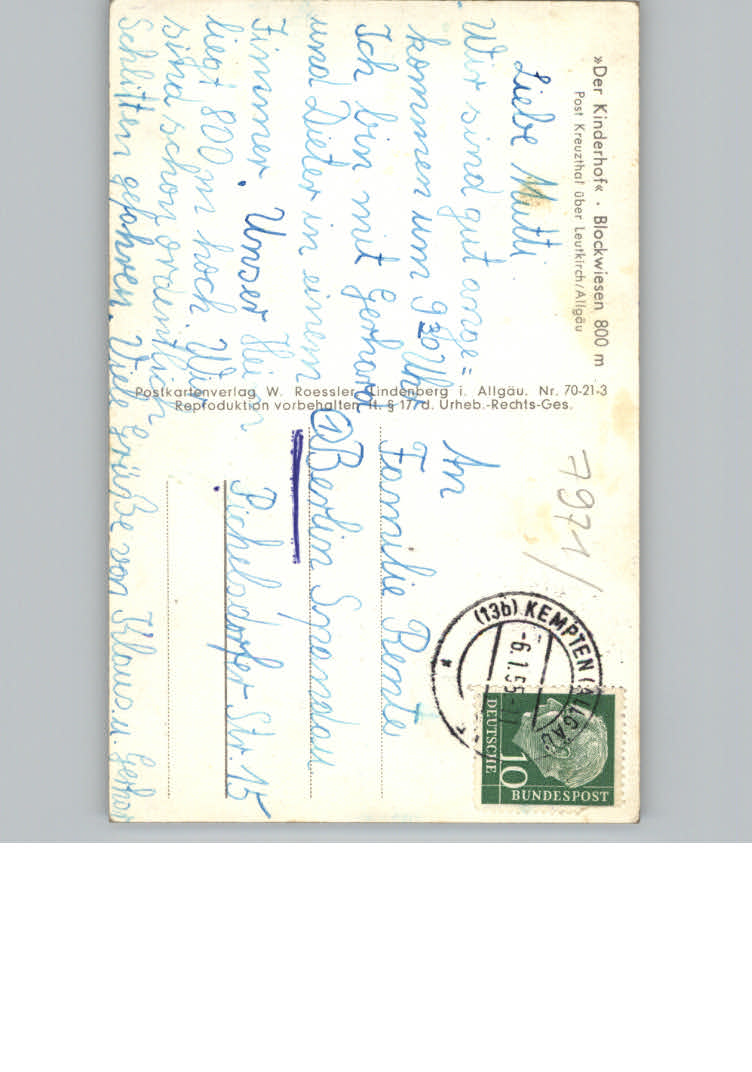 »Der Kinderhof« · Blockwiesen 800 m
Post Kreuzthal über Leutkirch/Allgäu
Liebe Mutti
Wir sind gut ange=
kommen um 9³⁰ Uhr
Ich bin mit Gerhard
und Dieter in einem
Zimmer. Unser Heim
liegt 800 m hoch Wir
sind schon ordentlich
Schlitten gefahren. Viele Grüße von Klaus u. Gerhar
Postkartenverlag W. Roessler, Lindenberg i. Allgäu. Nr. 70-21-3
Reproduktion vorbehalten lt. § 17/d. Urheb.-Rechts-Ges.
7971/
An
Familie Rente
① Berlin Spandau
Pichelsdorfer Str. 15
(13b) KEMPTEN (ALLGÄU)
-6.1.55-
DEUTSCHE
BUNDESPOST
10